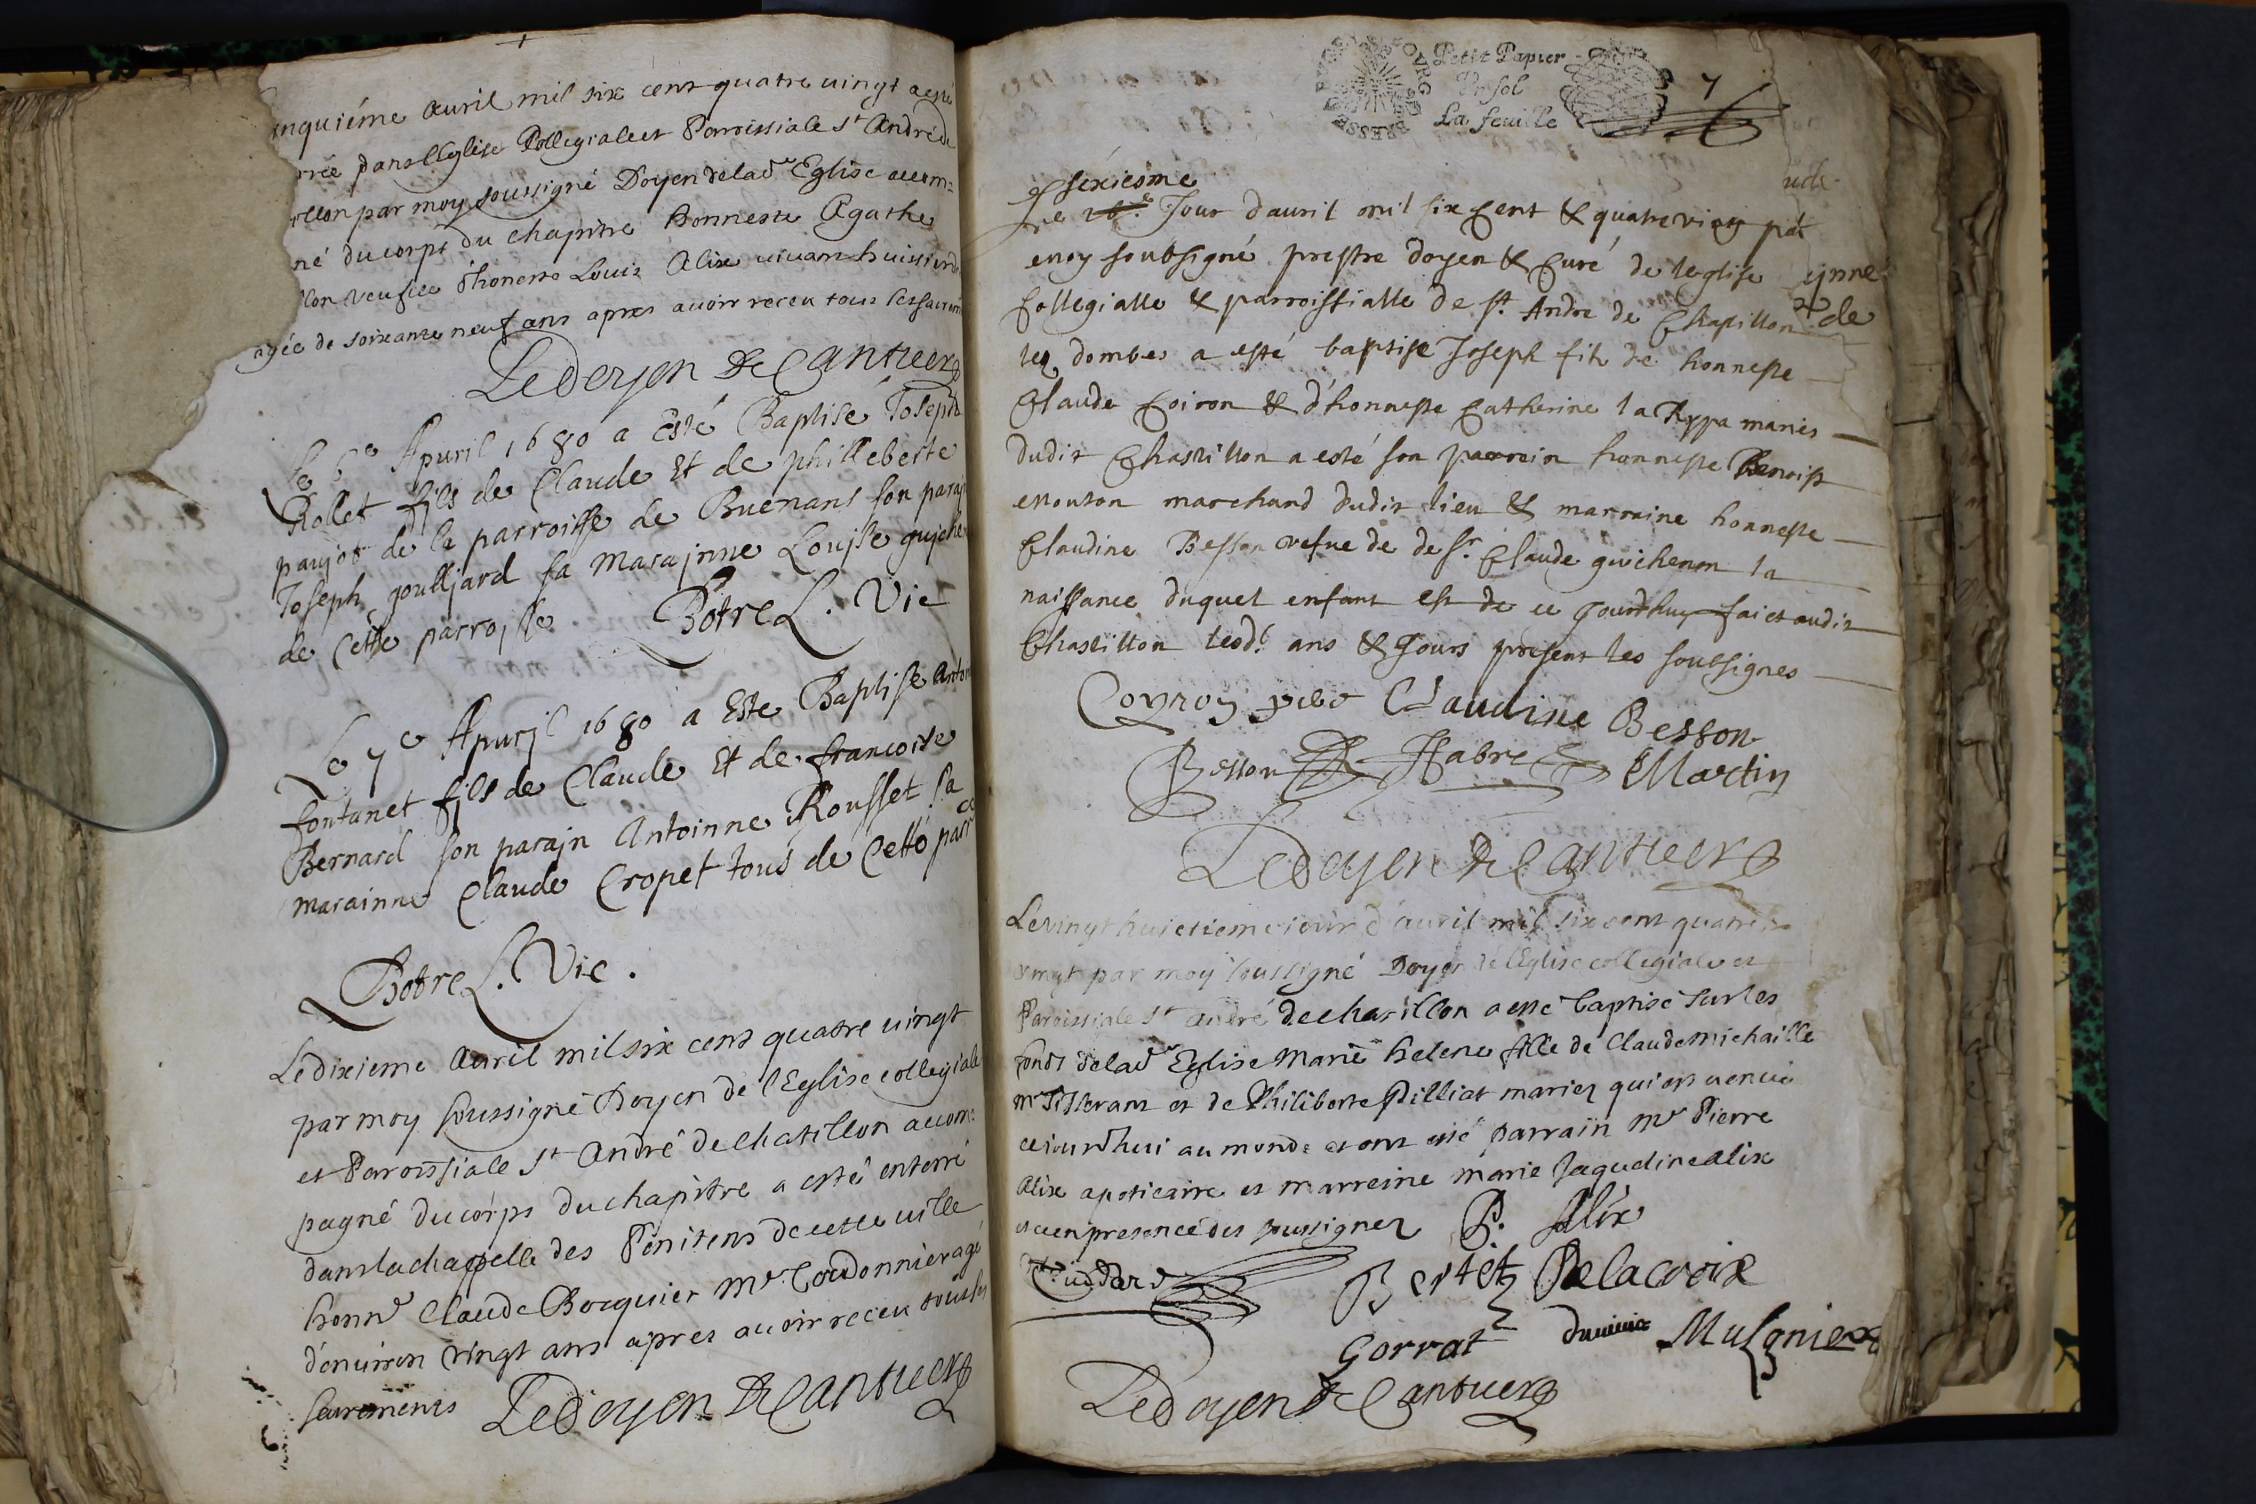 inquiéme auril mil six cent quatre uingt a esté
rrée dans l'Eglise Collegiale et Paroissiale St André de
illon par moy soussigné Doyen de lad Eglise accom=
né du corps du chapitre honneste Agathe
llon veufue d'honeste Louis Alix uiuant huissier
agée de soixante neuf ans apres auoir receu tous les sacrem
Le doyen De Cantuerg
Le 6e Apuril 1680 a Esté Baptisé Joseph
Rollet fils de Claude Et de philleberte
paujot de la parroisse de Buenans son parajn
Joseph gouljard sa marajnne Louise
de Cette parrojsse Botre L. Vic
Le 7e Apurjl 1680 a Este Baptise Anton
fontanet fils de Claude Et de francoise
Bernard son parajn Antoinne Rousset sa
marainne Claude Cropet tous de Cette parr
Botre L. Vic.
Le dixieme Auril mil six cent quatre uingt
par moy soussigné Doyen de l'Eglise collegiale
et Paroissiale St André de chatillon accom=
pagné du corps du chapitre a esté enterré
dans la chappelle des Penitens de cette uille
honne Claude Bocquier Mr Cordonnier agé
d'enuiron vingt ans apres auoir receu tous les
sacrements Le Doyen De Cantuerg
Petit Papier
Vn sol
La feuille
7
sixiesme
Le Jour dauril mil six Cent & quatre vint par
moy soubsigné prestre doyen & Curé de leglise
Collegialle & parroissialle de St. Andre de Chastillon
les dombes a esté baptise Joseph fils de honneste
Claude Coiron & d'honneste Catherine la Ryppa maries
dudit Chastillon a esté son parrein honneste Benoist
Mouton marchand dudit lieu & marraine honneste
Claudine Besson vefue de de Sr. Claude guichenon la
naissance duquel enfant est de ce Jourdhuy faict audit
Chastillon lesd. ans & Jours presents les soubsignes
Coyron Claudine Besson
Besson Fabre Martin
Le Doyen De Cantuerg
Le vingt huictieme iour d'auril mil six cent quatre
vingt par moy soussigné Doyen de l'Eglise collegiale et
Paroissiale St André de chatillon a esté baptisé sur les
fonds de lad Eglise Marie helene fille de Claude Michaille
mr Tisserant et de Philiberte Pilliat mariez qui est uenue
ceiourdhui au monde et ont esté parrain Mr Pierre
Alix apoticaire et marreine marie Jaqueline Alix
et ce en presence des soussignez P. Alix
Bertet Delacroix
Gorrat Musgnier
Le Doyen De Cantuerg